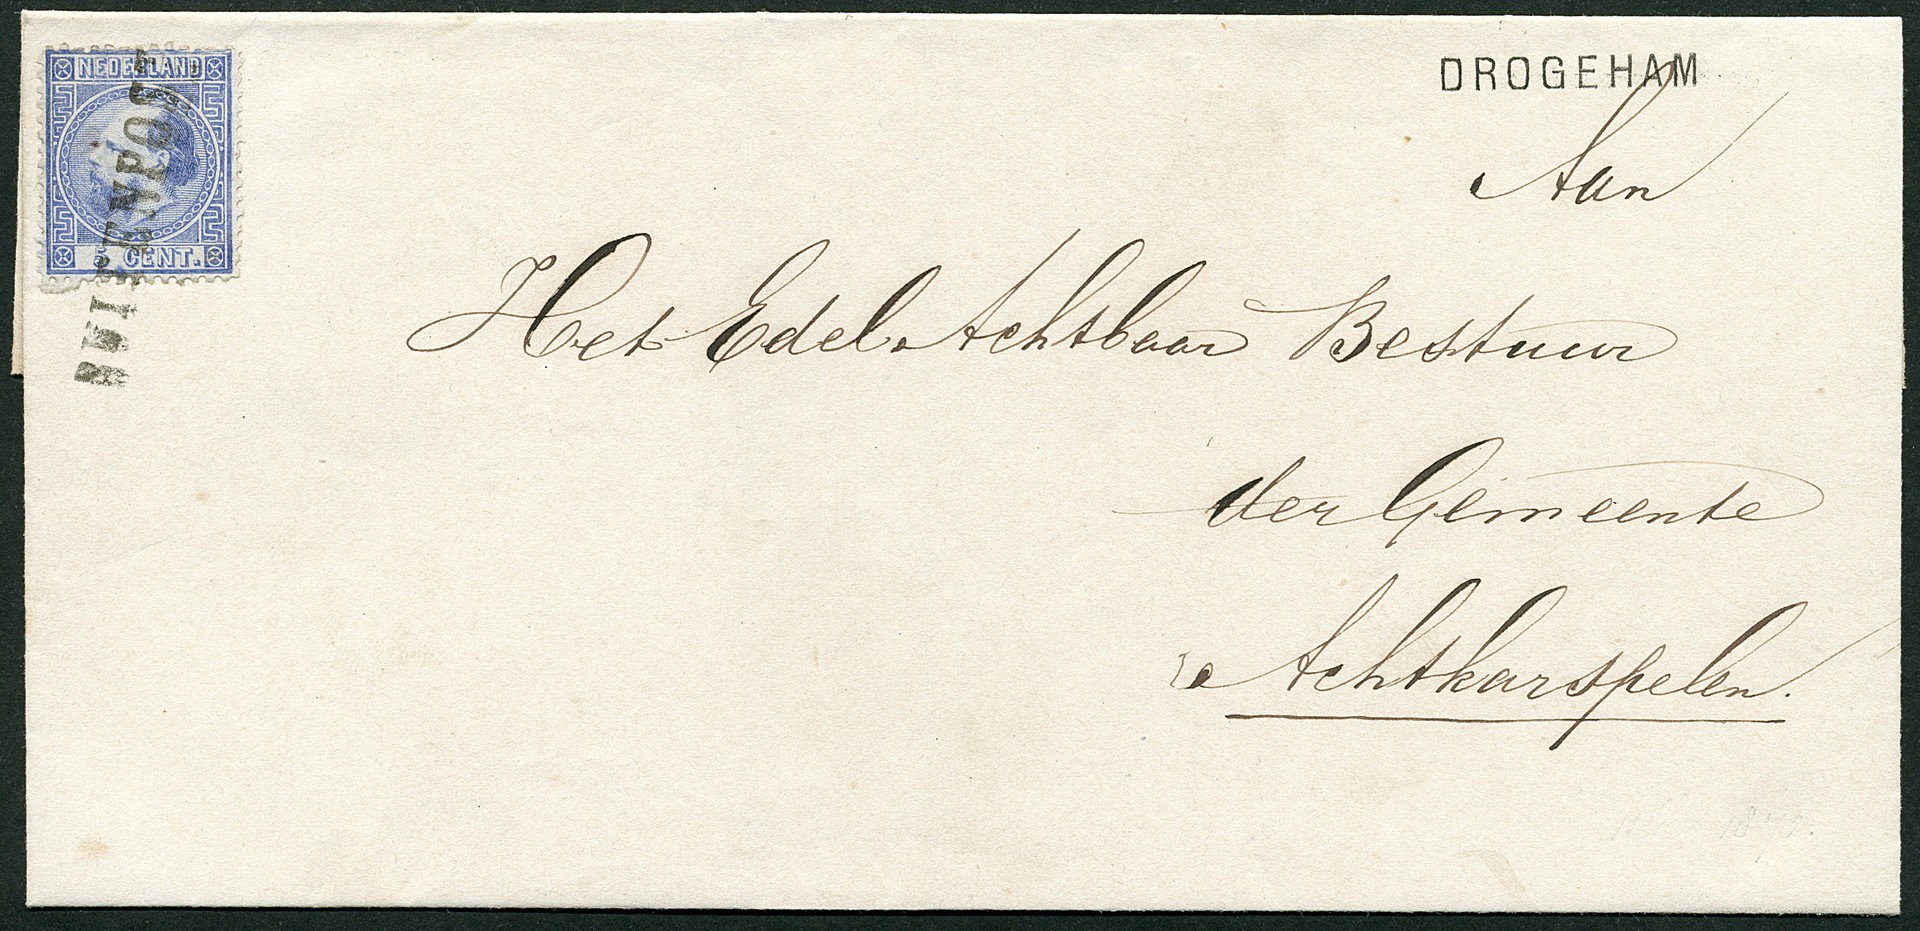 NEDERLAND
5 CENT.
BUITENPOST
DROGEHAM
Aan
Het Edel Achtbaar Bestuur
der Gemeente
Achtkarspelen.